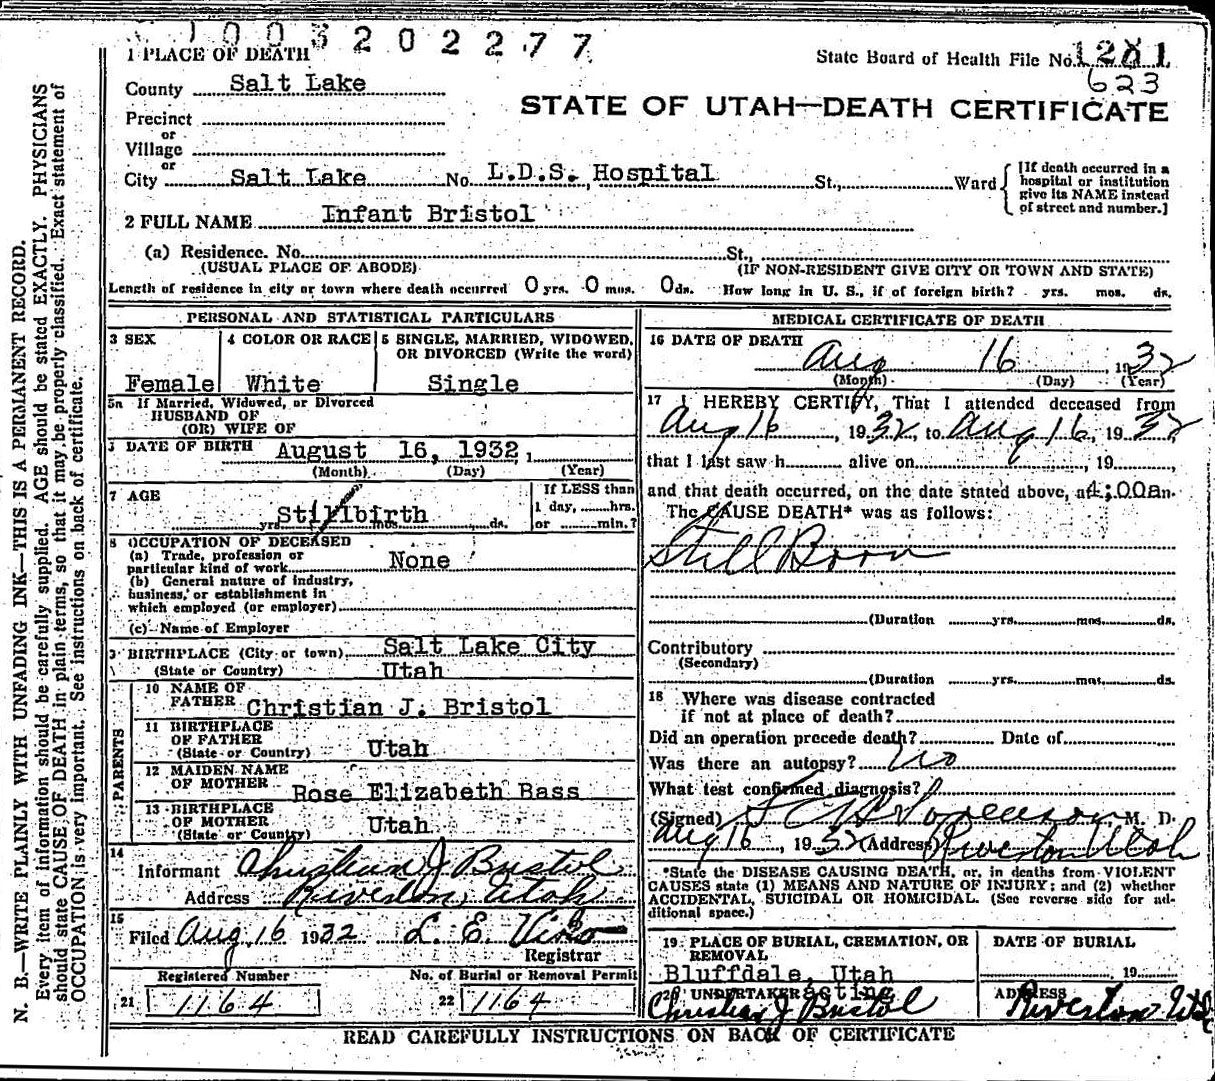 1003202277
1 PLACE OF DEATH
State Board of Health File No.
623
County Salt Lake
STATE OF UTAH—DEATH CERTIFICATE
Precinct
or
Village
or
City Salt Lake No. L.D.S. Hospital St., Ward
[If death occurred in a
hospital or institution
give its NAME instead
of street and number.]
2 FULL NAME Infant Bristol
(a) Residence. No. St.,
(USUAL PLACE OF ABODE) (IF NON-RESIDENT GIVE CITY OR TOWN AND STATE)
Length of residence in city or town where death occurred 0 yrs. 0 mos. 0 ds. How long in U. S., if of foreign birth? yrs. mos. ds.
PERSONAL AND STATISTICAL PARTICULARS
3 SEX 4 COLOR OR RACE 5 SINGLE, MARRIED, WIDOWED,
OR DIVORCED (Write the word)
Female White Single
5a If Married, Widowed, or Divorced
HUSBAND OF
(OR) WIFE OF
DATE OF BIRTH August 16, 1932, 1
(Month) (Day) (Year)
7 AGE If LESS than
1 day, hrs.
Stillbirth yrs. mos. ds. or min.?
8 OCCUPATION OF DECEASED
(a) Trade, profession or
particular kind of work None
(b) General nature of industry,
business, or establishment in
which employed (or employer)
(c) Name of Employer
9 BIRTHPLACE (City or town) Salt Lake City
(State or Country) Utah
PARENTS
10 NAME OF
FATHER Christian J. Bristol
11 BIRTHPLACE
OF FATHER
(State or Country) Utah
12 MAIDEN NAME
OF MOTHER Rose Elizabeth Bass
13 BIRTHPLACE
OF MOTHER
(State or Country) Utah
14
Informant Christian J Bristol
Address Riverton, Utah
15
Filed Aug 16 1932 L. E. Viko
Registrar
Registered Number No. of Burial or Removal Permit
21 1164 22 1164
MEDICAL CERTIFICATE OF DEATH
16 DATE OF DEATH
Aug 16, 1932
(Month) (Day) (Year)
17 I HEREBY CERTIFY, That I attended deceased from
Aug 16, 1932, to Aug 16, 1932,
that I last saw h alive on , 19 ,
and that death occurred, on the date stated above, at 4:00a m.
The CAUSE DEATH* was as follows:
Still Born
(Duration yrs. mos. ds.
Contributory
(Secondary)
(Duration yrs. mos. ds.
18 Where was disease contracted
if not at place of death?
Did an operation precede death? Date of
Was there an autopsy? No
What test confirmed diagnosis?
(Signed) Sorenson M. D.
Aug 16, 1932 (Address) Riverton Utah
*State the DISEASE CAUSING DEATH, or, in deaths from VIOLENT
CAUSES state (1) MEANS AND NATURE OF INJURY; and (2) whether
ACCIDENTAL, SUICIDAL OR HOMICIDAL. (See reverse side for ad-
ditional space.)
19 PLACE OF BURIAL, CREMATION, OR
REMOVAL
Bluffdale, Utah
DATE OF BURIAL
, 19
20 UNDERTAKER acting
Christian J Bristol
ADDRESS
Riverton Ut
READ CAREFULLY INSTRUCTIONS ON BACK OF CERTIFICATE
N. B.—WRITE PLAINLY WITH UNFADING INK—THIS IS A PERMANENT RECORD.
Every item of information should be carefully supplied. AGE should be stated EXACTLY. PHYSICIANS
should state CAUSE OF DEATH in plain terms, so that it may be properly classified. Exact statement of
OCCUPATION is very important. See instructions on back of certificate.